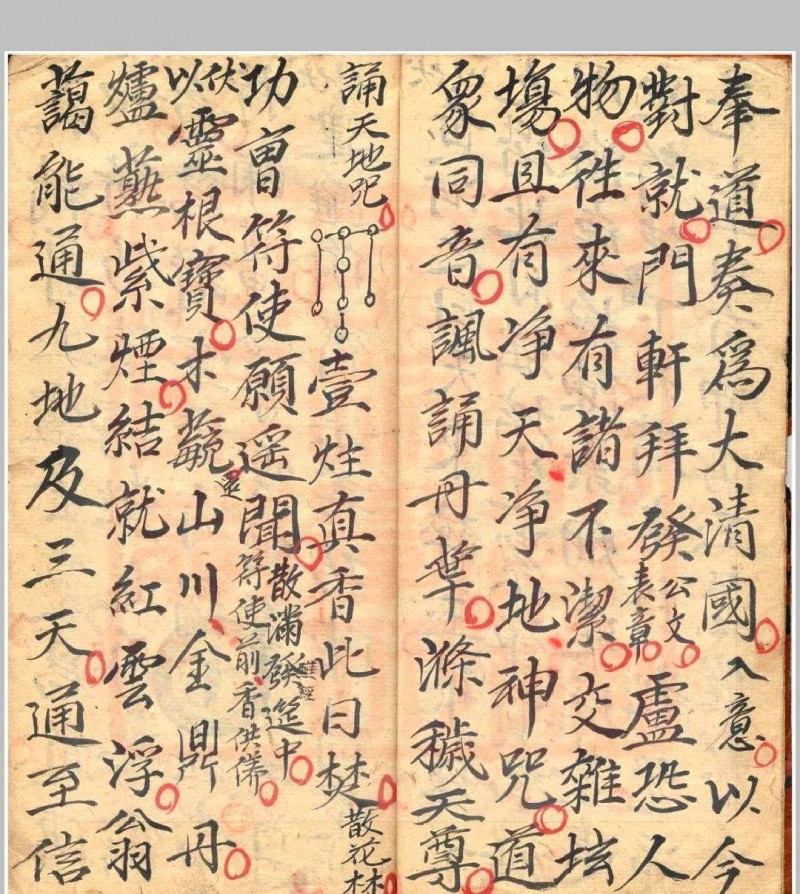 奉道奏爲大清國入意以今
對就門軒拜發公文表章盧恐人
物徃來有諸不潔交雜坛
塲且有净天净地神咒道
衆同音諷誦丹華滌穢天尊
誦天地咒壹炷真香此日焚散花林
功曹符使願遥聞散滿發筵中符使前香供俻
伏以靈根寶木山川金鼎丹
爐爇紫煙結就紅雲浮翁
藹能通九地及三天通至信